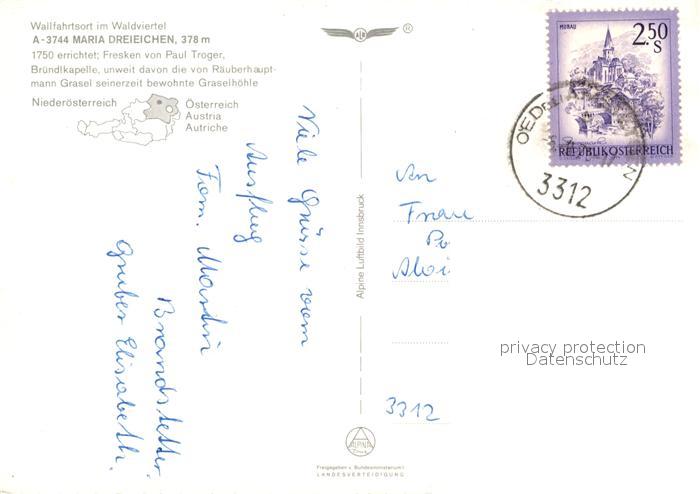 Wallfahrtsort im Waldviertel
A-3744 MARIA DREIEICHEN, 378 m
1750 errichtet; Fresken von Paul Troger,
Bründlkapelle, unweit davon die von Räuberhaupt-
mann Grasel seinerzeit bewohnte Graselhöhle
Niederösterreich
Österreich
Austria
Autriche
Viele Grüsse vom
Ausflug
Fam. Martin
Brandstetter
Gruber Elisabeth.
Alpine Luftbild Innsbruck
ALPINA
Freigegeben v. Bundesministerium f.
LANDESVERTEIDIGUNG
®
MURAU
2.50
S
REPUBLIK ÖSTERREICH
3312
An
Frau
Po
Aloi
privacy protection
Datenschutz
3312